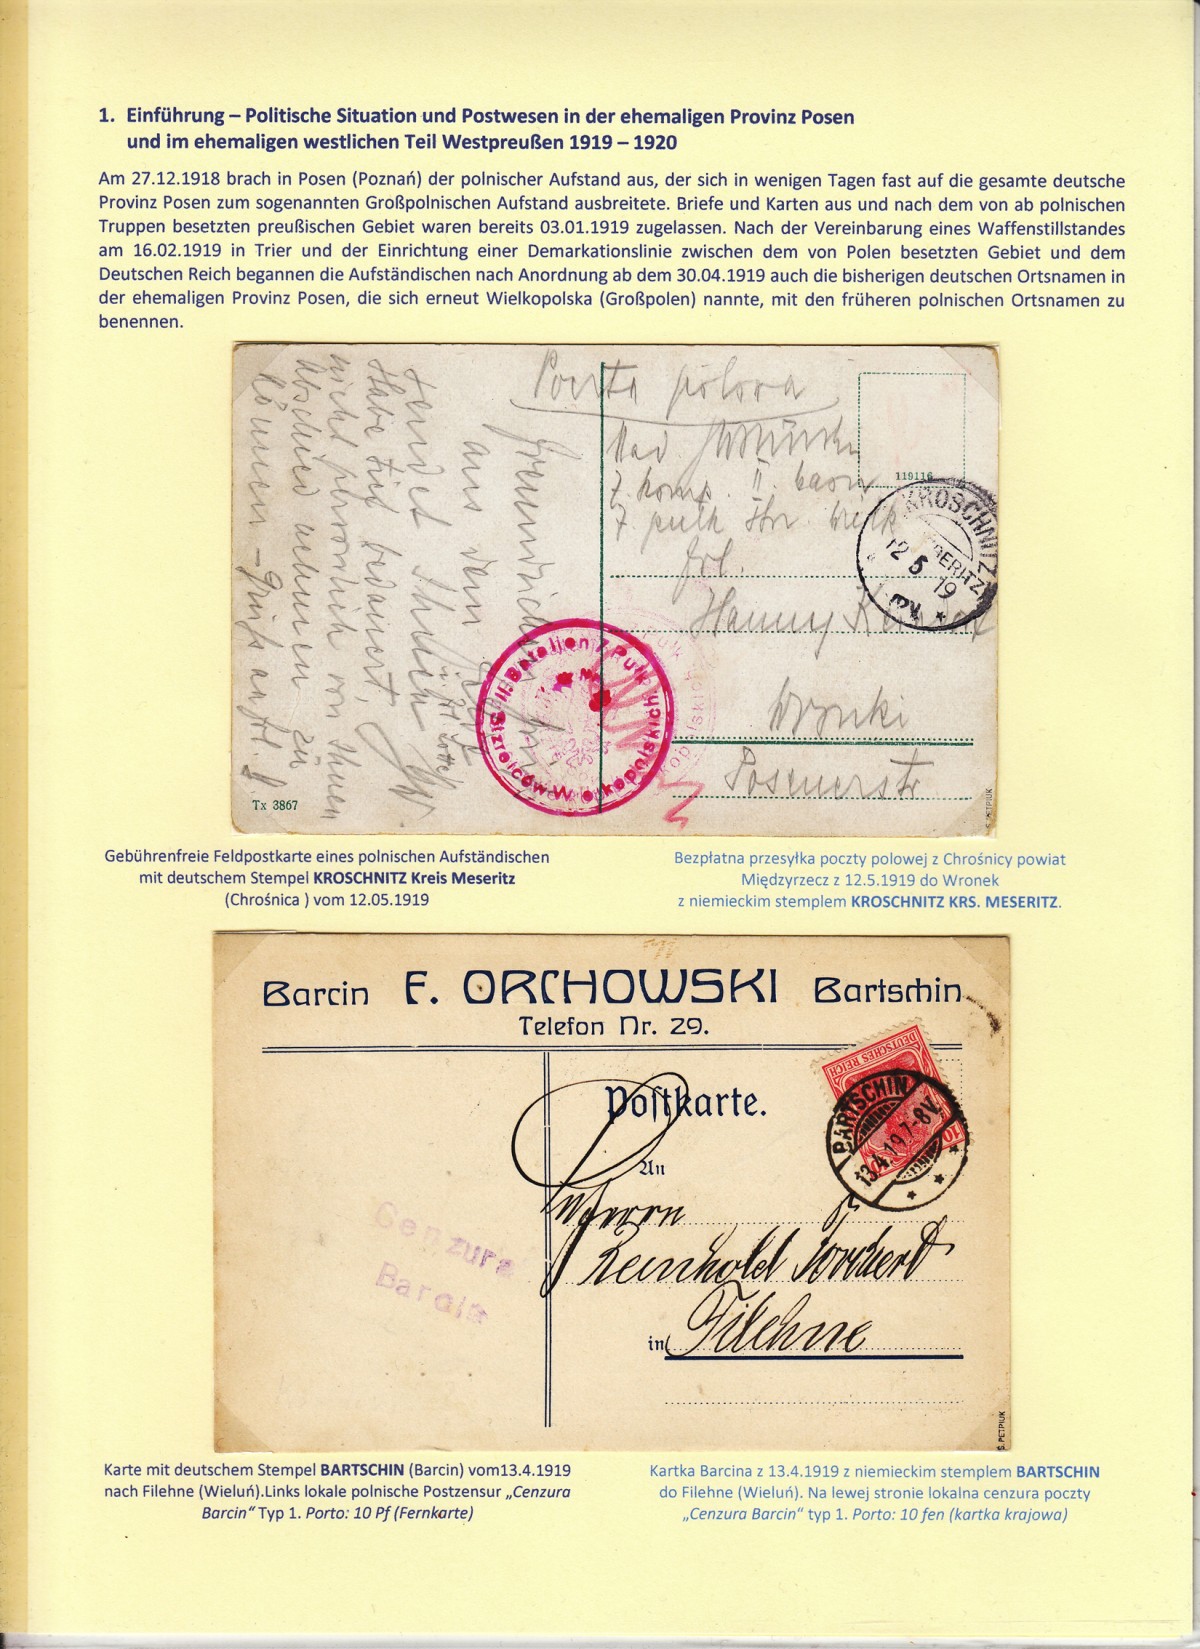 1. Einführung – Politische Situation und Postwesen in der ehemaligen Provinz Posen
und im ehemaligen westlichen Teil Westpreußen 1919 – 1920
Am 27.12.1918 brach in Posen (Poznań) der polnischer Aufstand aus, der sich in wenigen Tagen fast auf die gesamte deutsche
Provinz Posen zum sogenannten Großpolnischen Aufstand ausbreitete. Briefe und Karten aus und nach dem von ab polnischen
Truppen besetzten preußischen Gebiet waren bereits 03.01.1919 zugelassen. Nach der Vereinbarung eines Waffenstillstandes
am 16.02.1919 in Trier und der Einrichtung einer Demarkationslinie zwischen dem von Polen besetzten Gebiet und dem
Deutschen Reich begannen die Aufständischen nach Anordnung ab dem 30.04.1919 auch die bisherigen deutschen Ortsnamen in
der ehemaligen Provinz Posen, die sich erneut Wielkopolska (Großpolen) nannte, mit den früheren polnischen Ortsnamen zu
benennen.
Poczta polowa
7 komp. II. baon
7 pulk
Frl.
Hanny
Wronki
Posenerstr
aus dem
sendet Ihnen
Habe
bedauert,
nicht persönlich von Ihnen
Abschied nehmen zu
können - Gruß an Frl.
119116
KROSCHNITZ
MESERITZ
12 5 19
II. Bataljon 7 Pułk
Strzelców Wielkopolskich
Tx 3867
S. PETPIUK
Gebührenfreie Feldpostkarte eines polnischen Aufständischen
mit deutschem Stempel KROSCHNITZ Kreis Meseritz
(Chrośnica ) vom 12.05.1919
Bezpłatna przesyłka poczty polowej z Chrośnicy powiat
Międzyrzecz z 12.5.1919 do Wronek
z niemieckim stemplem KROSCHNITZ KRS. MESERITZ.
Barcin F. ORCHOWSKI Bartschin
Telefon Nr. 29.
DEUTSCHES REICH
10
BARTSCHIN
13.4.19.7-8V.
Postkarte.
An
Herrn
Reinhold
in Filehne
Cenzura
Barcin
S. PETPIUK
Karte mit deutschem Stempel BARTSCHIN (Barcin) vom13.4.1919
nach Filehne (Wieluń).Links lokale polnische Postzensur „Cenzura
Barcin“ Typ 1. Porto: 10 Pf (Fernkarte)
Kartka Barcina z 13.4.1919 z niemieckim stemplem BARTSCHIN
do Filehne (Wieluń). Na lewej stronie lokalna cenzura poczty
„Cenzura Barcin“ typ 1. Porto: 10 fen (kartka krajowa)